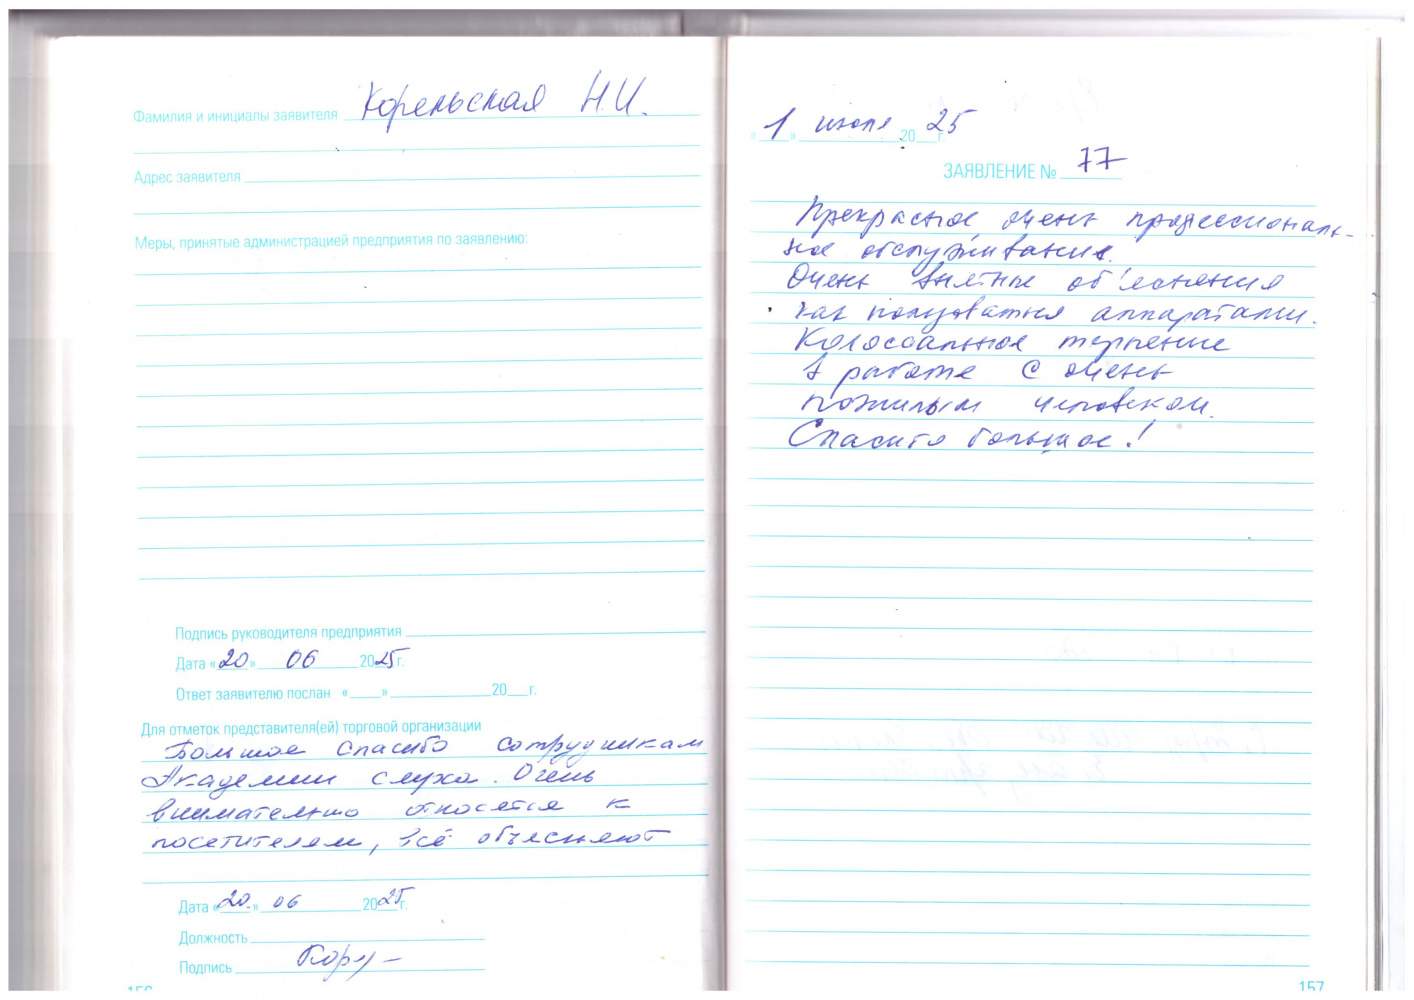 Фамилия и инициалы заявителя Корельская Н.И.
Адрес заявителя
Меры, принятые администрацией предприятия по заявлению:
Подпись руководителя предприятия
Дата «20» 06 2025г.
Ответ заявителю послан « » 20 г.
Для отметок представителя(ей) торговой организации
Большое спасибо сотрудникам
Академии слуха. Очень
внимательно относятся к
посетителям, всё объясняют
Дата «20» 06 2025г.
Должность
Подпись
156
«1» июля 2025г.
ЗАЯВЛЕНИЕ № 77
Прекрасное очень профессиональ-
ное обслуживание.
Очень внятные об'яснения
как пользоваться аппаратами.
Колоссальное терпение
в работе с очень
пожилым человеком.
Спасибо большое!
157